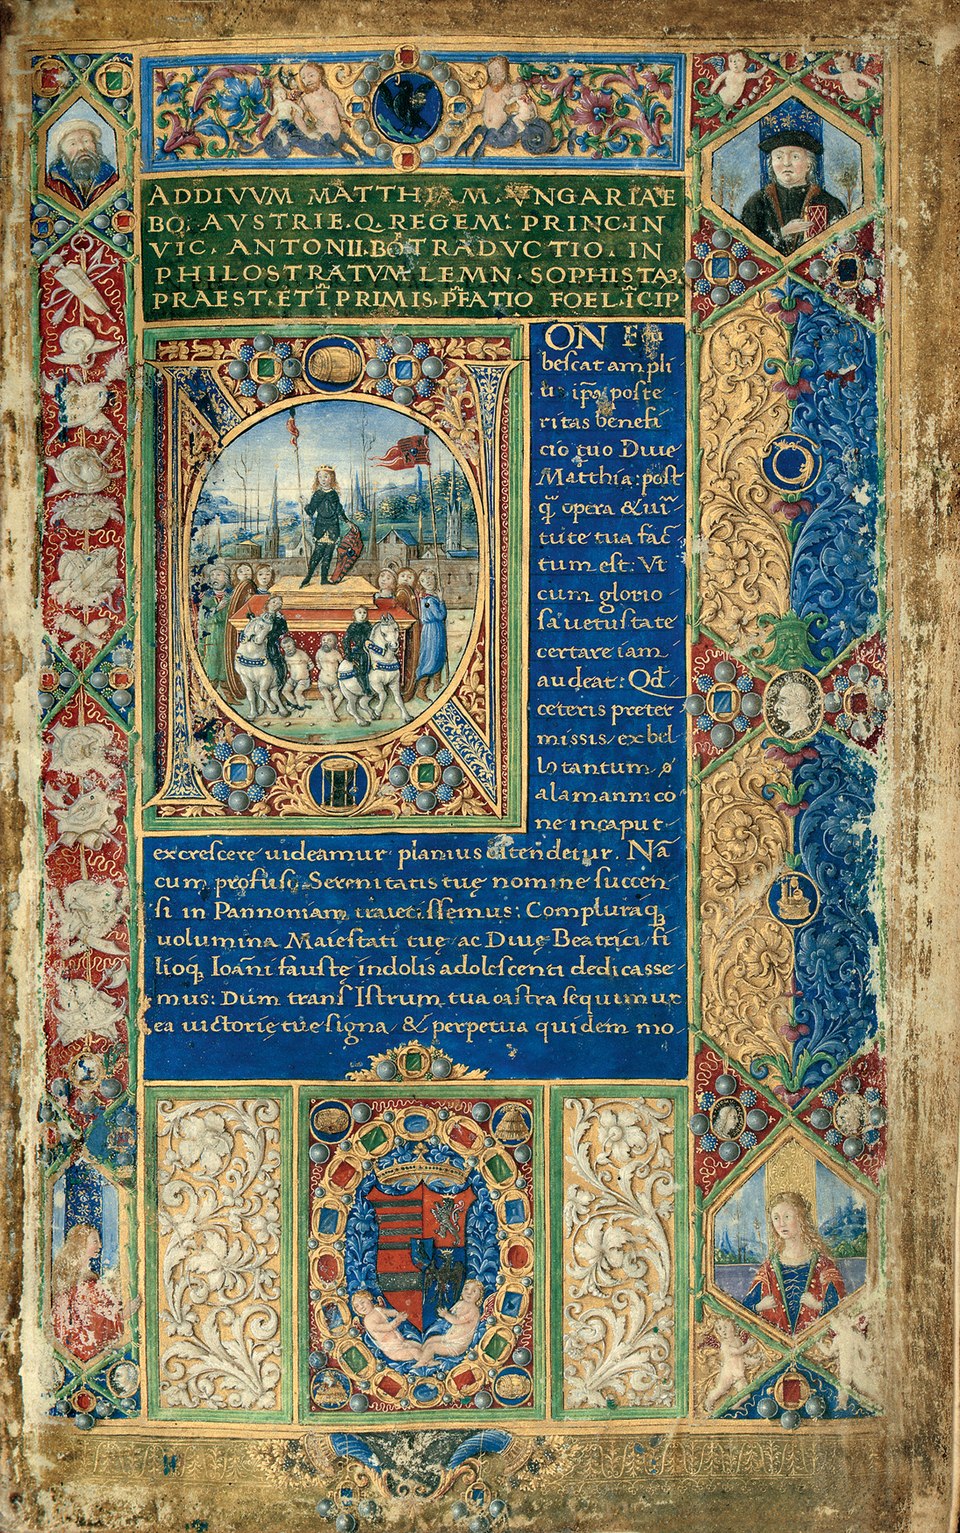 AD DIVVM MATTHIAM VNGARIAE
BO. AVSTRIE.Q. REGEM. PRINC. IN
VIC. ANTONII. BO. TRADVCTIO. IN
PHILOSTRATVM LEMN. SOPHISTA
PRAEST. ETĪ PRIMIS. P̄FATIO FOEL. ĪCIP
ON
beſcat ampli
u ip̄a poſte
ritas benefi
cio quo Diue
Matthia: poſt
opera &
tute tua fac̄
tum eſt: Vt
cum glorio
ſa uetuſtate
certare iam
audeat: Qd̄
ceteris preter
miſſis ex bel
lo tantum
alamannico
ne in caput
excreſcere uideamur planius oſtendetur. Nā
cum profuſo Serenitatis tuę nomine ſuccen
ſi in Pannoniam traieciſſemus: Compluraq̨
uolumina Maieſtati tuę ac Diuę Beatrici fi
lioq̨ Ioāni fauſtę indolis adoleſcenti dedicaſſe
mus: Dum tranſ Iſtrum tua caſtra ſequimur
ea uictorię tuę ſigna & perpetua quidem mo